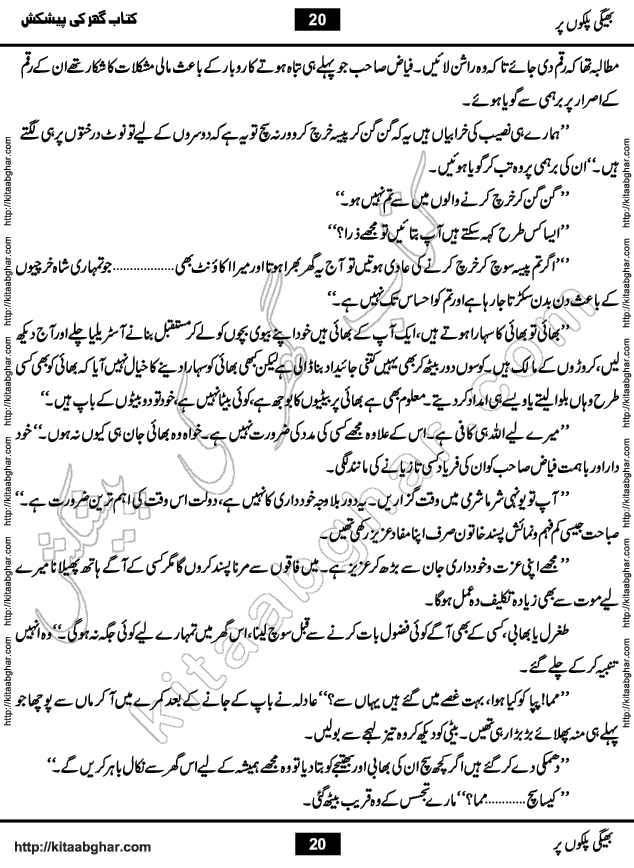 بھیگی پلکوں پر 20 کتاب گھر کی پیشکش
مطالبہ تھا کہ رقم دی جائے تاکہ وہ راشن لائیں۔ فیاض صاحب جو پہلے ہی تباہ ہوتے کاروبار کے باعث مالی مشکلات کا شکار تھے ان کے رقم
کے اصرار پر برہمی سے گویا ہوئے۔
’’ہمارے ہی نصیب کی خرابیاں ہیں یہ کہ گن گن کر پیسہ خرچ کرو ورنہ سچ تو یہ ہے کہ دوسروں کے لیے تو نوٹ درختوں پر ہی لگتے
ہیں۔‘‘ ان کی برہمی پر وہ تپ کر گویا ہوئیں۔
’’گن گن کر خرچ کرنے والوں میں سے تم نہیں ہو۔‘‘
’’ایسا کس طرح کہہ سکتے ہیں آپ بتائیں تو مجھے ذرا؟‘‘
’’اگر تم پیسہ سوچ کر خرچ کرنے کی عادی ہوتیں تو آج یہ گھر بھرا ہوتا اور میرا اکاؤنٹ بھی .................. جو تمہاری شاہ خرچیوں
کے باعث دن بدن سکڑتا جا رہا ہے اور تم کو احساس تک نہیں ہے۔‘‘
’’بھائی تو بھائی کا سہارا ہوتے ہیں، ایک آپ کے بھائی ہیں خود اپنے بیوی بچوں کو لے کر مستقبل بنانے آسٹریلیا چلے اور آج دیکھ
لیں، کروڑوں کے مالک ہیں۔ کوسوں دور بیٹھ کر بھی یہیں کتنی جائیداد بنا ڈالی ہے لیکن کبھی بھائی کو سہارا دینے کا خیال نہیں آیا کہ بھائی کو بھی کسی
طرح وہاں بلوا لیتے یا ویسے ہی امداد کر دیتے۔ معلوم بھی ہے بھائی پر بیٹیوں کا بوجھ ہے، کوئی بیٹا نہیں ہے، خود تو دو بیٹوں کے باپ ہیں۔‘‘
’’میرے لیے اللہ ہی کافی ہے۔ اس کے علاوہ مجھے کسی کی مدد کی ضرورت نہیں ہے۔ خواہ وہ بھائی جان ہی کیوں نہ ہوں۔‘‘ خود
دار اور باہمت فیاض صاحب کو ان کی فریاد کسی تازیانے کی مانند لگی۔
’’آپ تو یونہی شرما شرمی میں وقت گزاریں۔ یہ دور بلاوجہ خودداری کا نہیں ہے، دولت اس وقت کی اہم ترین ضرورت ہے۔‘‘
صباحت جیسی کم فہم و نمائش پسند خاتون صرف اپنا مفاد عزیز رکھتی تھیں۔
’’مجھے اپنی عزت و خودداری جان سے بڑھ کر عزیز ہے۔ میں فاقوں سے مرنا پسند کروں گا مگر کسی کے آگے ہاتھ پھیلانا میرے
لیے موت سے بھی زیادہ تکلیف دہ عمل ہوگا۔
طغرل یا بھابی، کسی کے بھی آگے کوئی فضول بات کرنے سے قبل سوچ لینا، اس گھر میں تمہارے لیے کوئی جگہ نہ ہو گی۔‘‘ وہ انہیں
تنبیہ کر کے چلے گئے۔
’’مما! پپا کو کیا ہوا، بہت غصے میں گئے ہیں یہاں سے؟‘‘ عادلہ نے باپ کے جانے کے بعد کمرے میں آ کر ماں سے پوچھا جو
پہلے ہی منہ پھلائے بڑبڑا رہی تھیں۔ بیٹی کو دیکھ کر وہ تیز لہجے سے بولیں۔
’’دھمکی دے کر گئے ہیں اگر کچھ سچ ان کی بھابی اور بھتیجے کو بتا دیا تو وہ مجھے ہمیشہ کے لیے اس گھر سے نکال باہر کریں گے۔‘‘
’’کیسا سچ ............ مما؟‘‘ مارے تجسس کے وہ قریب بیٹھ گئی۔
http://kitaabghar.com http://kitaabghar.com http://kitaabghar.com http://kitaabghar.com http://kitaabghar.com http://kitaabghar.com
http://kitaabghar.com http://kitaabghar.com http://kitaabghar.com http://kitaabghar.com http://kitaabghar.com http://kitaabghar.com
کتاب گھر کی پیشکش
kitaabghar.com
بھیگی پلکوں پر 20 http://kitaabghar.com